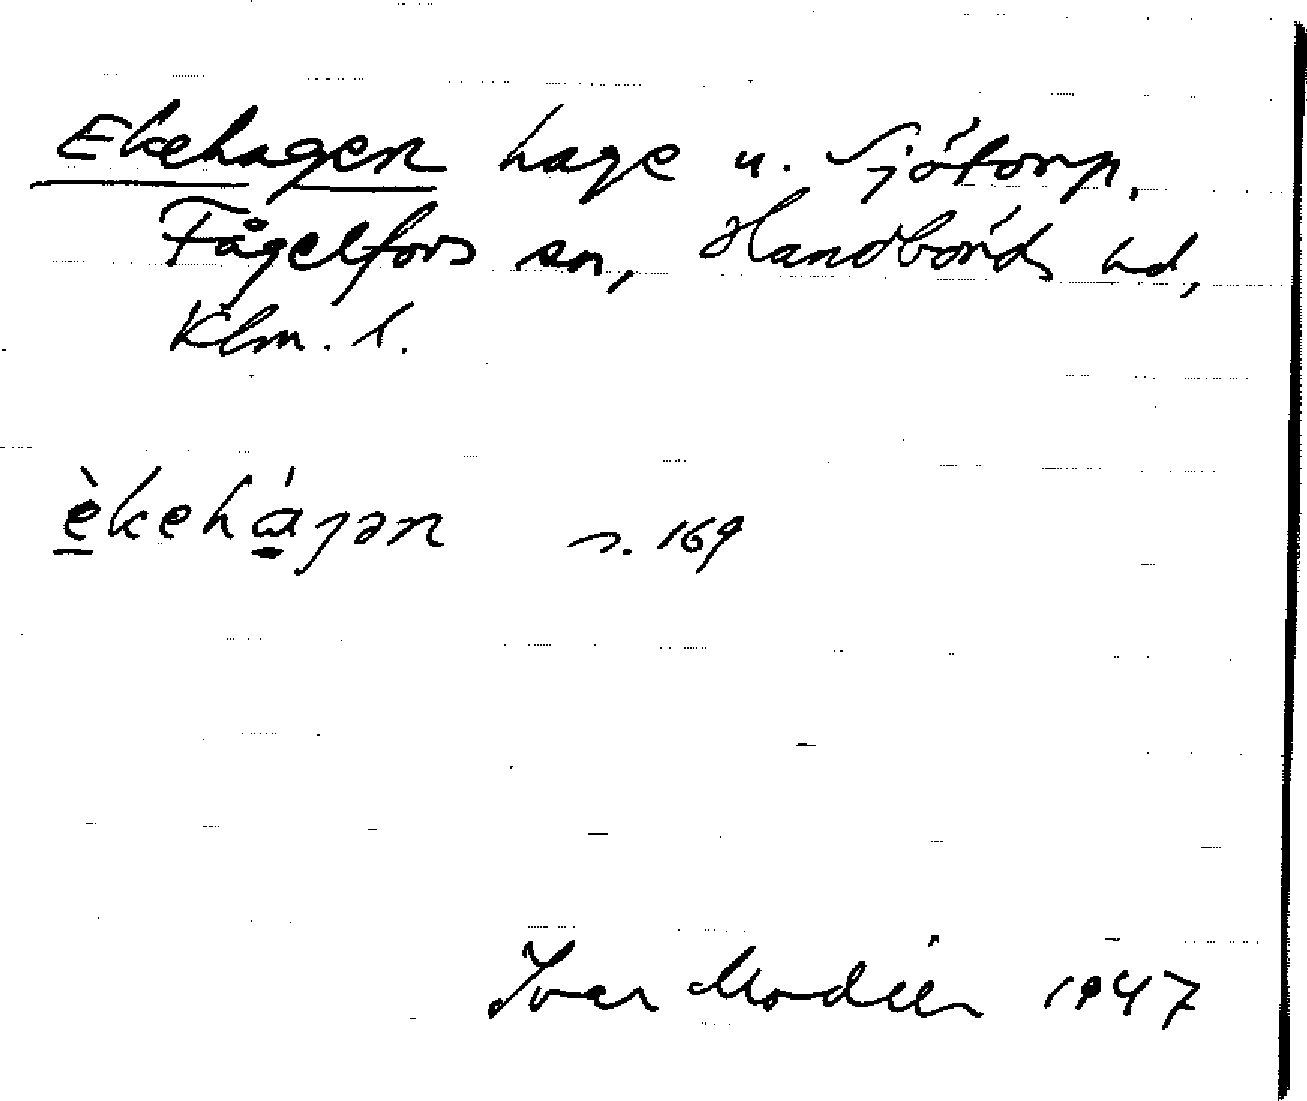 Ekehagen hage u. Sjötorp,
Fågelfors sn, Handbörds hd,
Klm. l.
èkehágən s. 169
Ivar Modéer 1947